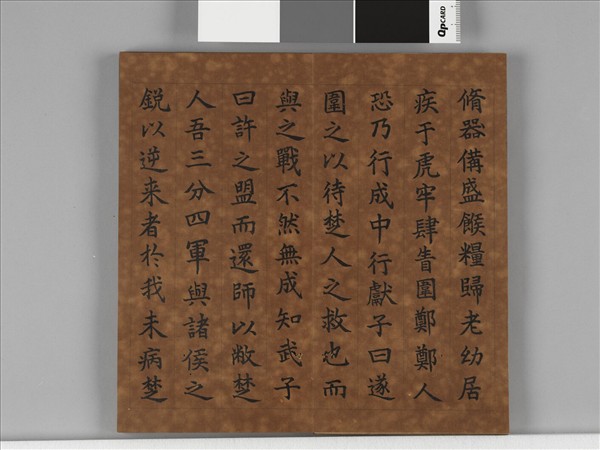 脩器備盛餱糧歸老幼居
疾于虎牢肆眚圍鄭鄭人
恐乃行成中行獻子曰遂
圍之以待楚人之救也而
與之戰不然無成知武子
曰許之盟而還師以敝楚
人吾三分四軍與諸侯之
鋭以逆来者於我未病楚
QPCARD